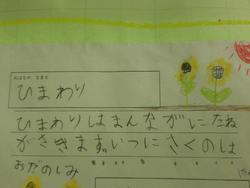 おはなの なまえ
ひまわり
ひまわりはまんなかにたね
がさきます。いつにさくのは
おたのしみ